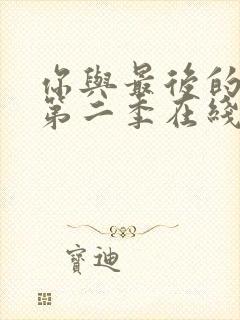 你與最後的
第二季在綫
寶迪